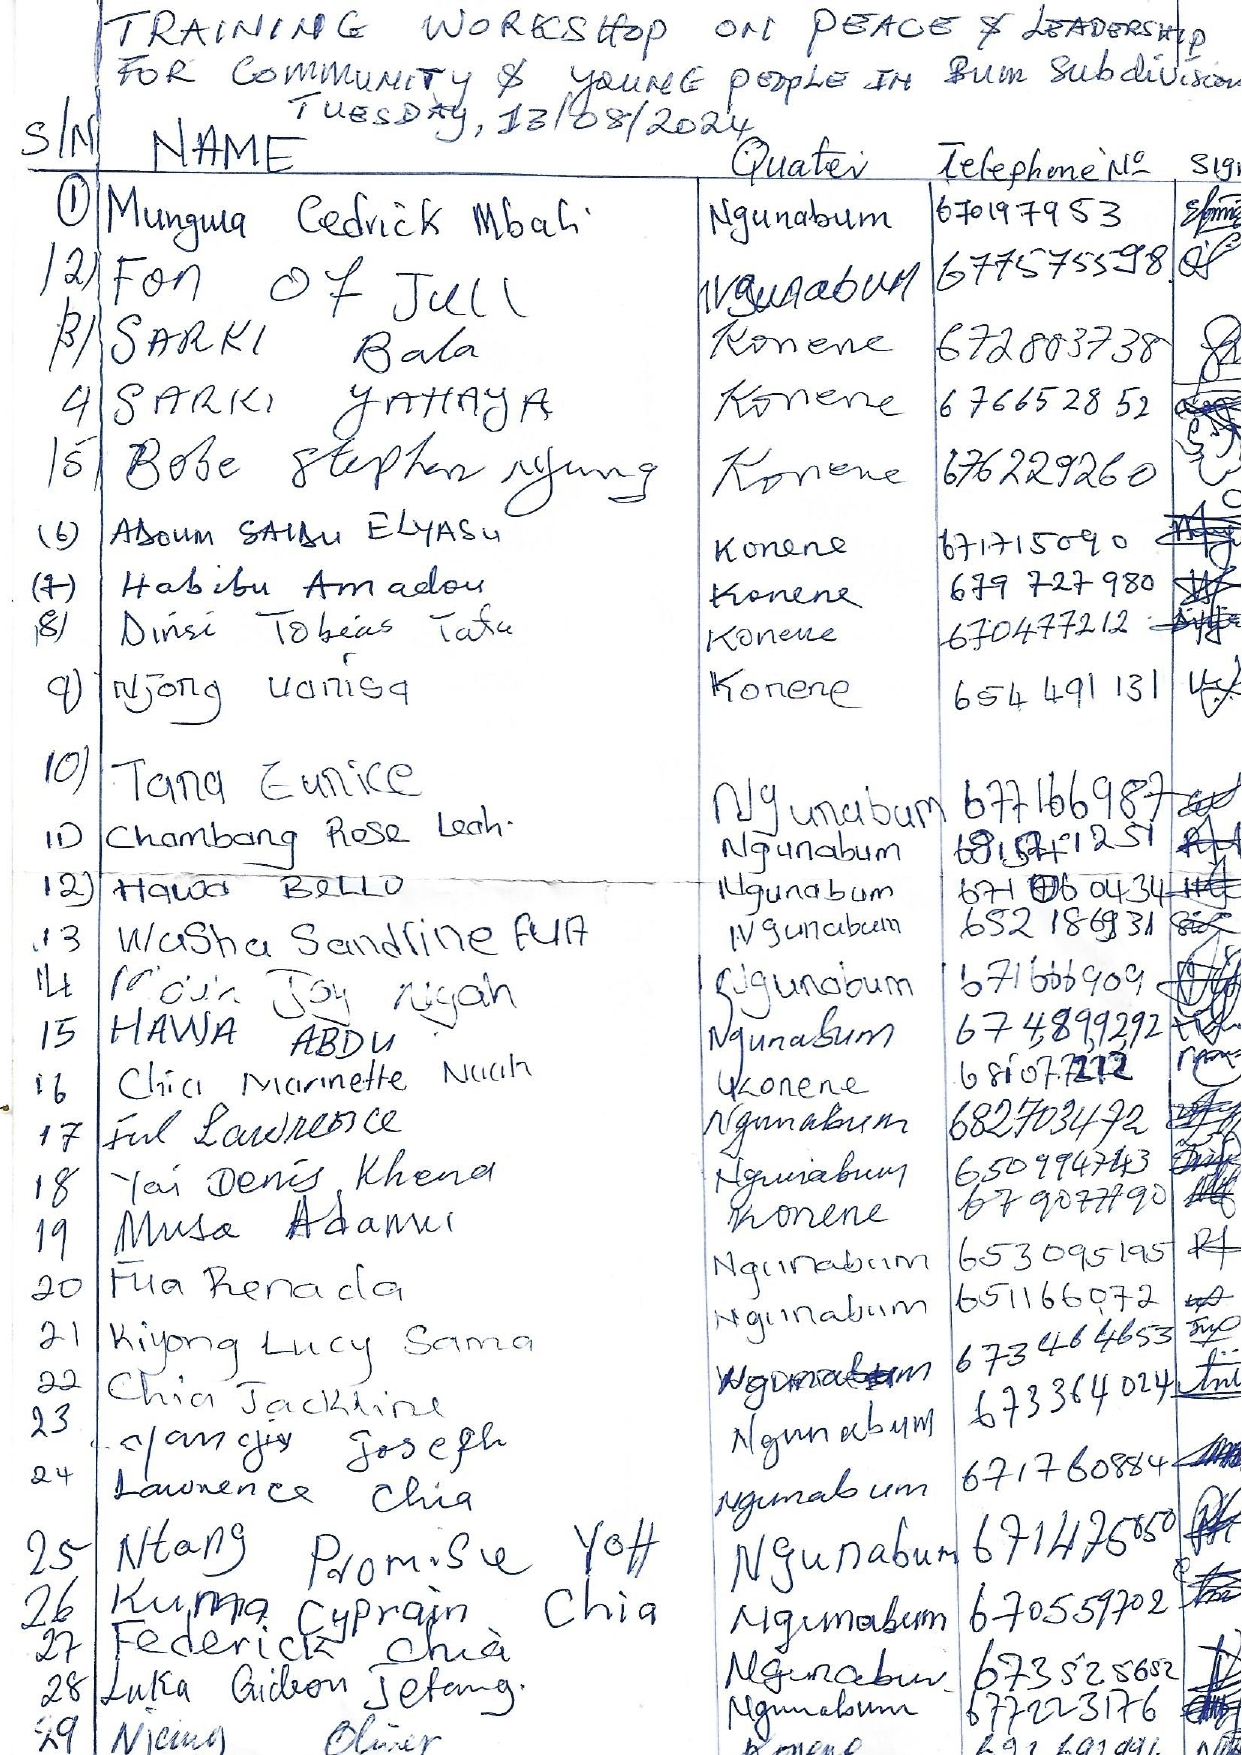 TRAINING WORKSHOP ON PEACE & LEADERSHIP
FOR COMMUNITY & YOUNG PEOPLE IN Bum Subdivision
TUESDAY, 13/08/2024
S/N NAME Quater Telephone No Sign
1 Mungwa Cedrick Mbah Ngunabum 670197953
2) Fon Of Jull Ngunabum 677575598
3) SARKI Bala Konene 672803738
4 SARKI YAHAYA Konene 676652852
5 Bobe Stephen Njung Konene 676229260
(6) ADOUM SAIDU ELYASU Konene 671715090
(7) Habibu Amadou Konene 679 727 980
8) Dinsi Tobias Tafu Konene 670477212
9) Njong Konene 654 491 131
10) Tana Eunice Ngunabum 677166987
11) Chambang Rose Leah. Ngunabum
12) Hawa BELLO Ngunabum
13 Washa Sandrine FUA Ngunabum 652 186931
14 Joy Ngunabum 671666909
15 HAWA ABDU Ngunabum 674899292
16 Chia Marinette Nuah Konene 681077212
17 Ful Lawrence Ngunabum 682703472
18 Yai Denis Khena Ngunabum 650994743
19 Musa Adamu Konene 679077190
20 Fua Renada Ngunabum 653095195
21 Kiyong Lucy Sama Ngunabum 651166072
22 Chia Jackline Ngunabum 673464653
23 Joseph Ngunabum 673364024
24 Lawrence Chia Ngunabum 671760884
25 Ntang Promise Yoff Ngunabum 671475050
26 Kuma Cyprain Chia Ngunabum 670559702
27 Federick Chia Ngunabum 673525652
28 Luka Gideon Jetang. Ngunabum 677223176
29 Oliver Konene